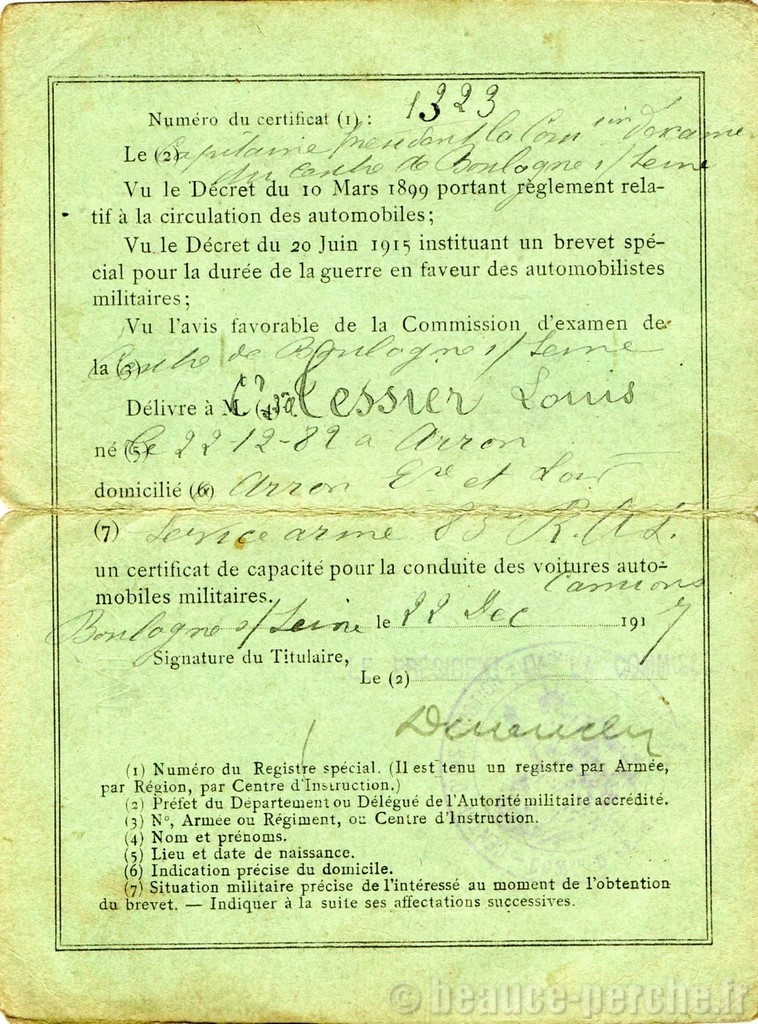 Numéro du certificat (1) : 1323
Le (2) Capitaine Président la Com sion D'examen
du centre de Boulogne s/Seine
Vu le Décret du 10 Mars 1899 portant règlement rela-
tif à la circulation des automobiles;
Vu le Décret du 20 Juin 1915 instituant un brevet spé-
cial pour la durée de la guerre en faveur des automobilistes
militaires;
Vu l'avis favorable de la Commission d'examen de
la (3) Centre de Boulogne s/Seine
Délivre à M. (4) Tessier Louis
né (5) le 22-12-82 a Arrou
domicilié (6) Arrou Ere et Loir
(7) Service armé 83me R.A.L.
un certificat de capacité pour la conduite des voitures auto-
mobiles militaires. Camions
Boulogne s/Seine le 22 Dec 1917
Signature du Titulaire,
LE PRESIDENT DE LA COMMIS
Le (2)
(1) Numéro du Registre spécial. (Il est tenu un registre par Armée,
par Région, par Centre d'Instruction.)
(2) Préfet du Département ou Délégué de l'Autorité militaire accrédité.
(3) No, Armée ou Régiment, ou Centre d'Instruction.
(4) Nom et prénoms.
(5) Lieu et date de naissance.
(6) Indication précise du domicile.
(7) Situation militaire précise de l'intéressé au moment de l'obtention
du brevet. — Indiquer à la suite ses affectations successives.
© beauce-perche.fr